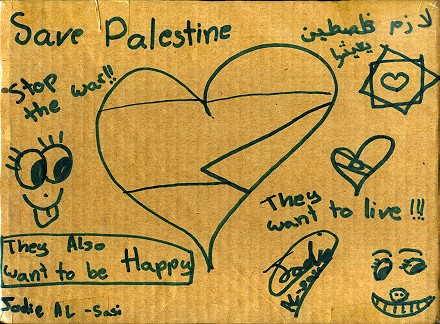 Save Palestine
لازم فلسطين
يعيشوا
Stop
the war!!
They
want to live!!!
They Also
want to be Happy
Jodie AL-Sasi